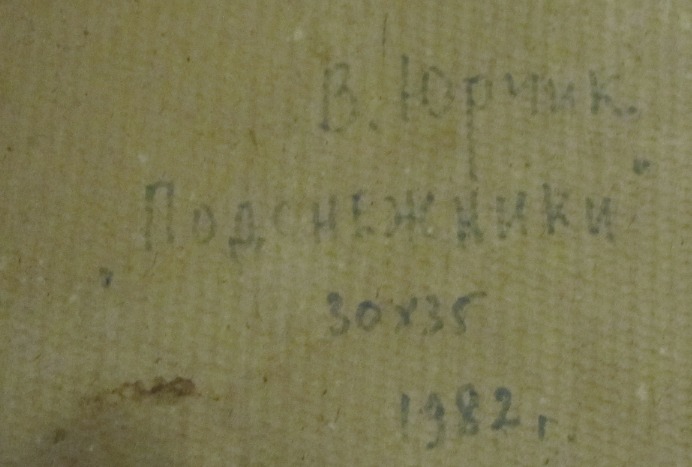 В. Юрчик.
"Подснежники"
30х35
1982,